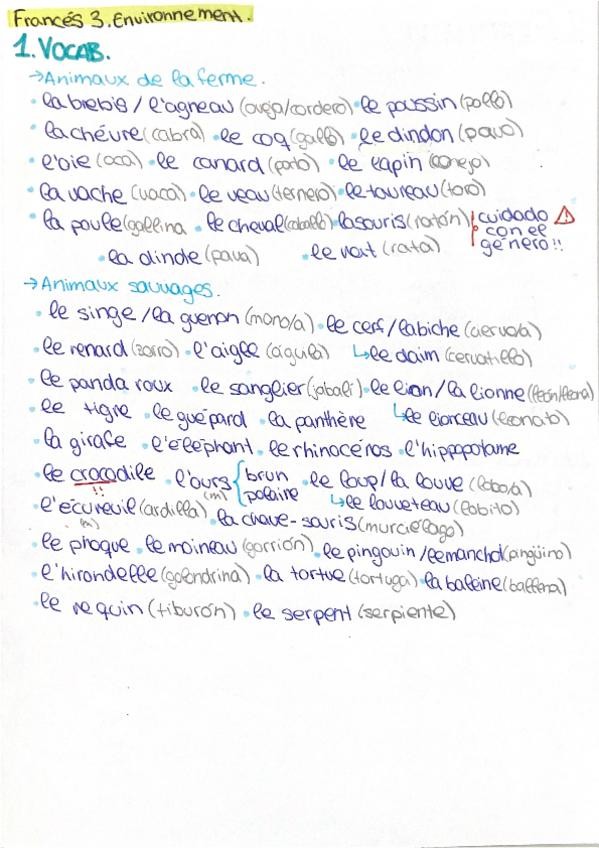 Francés 3. Environnement.
1. VOCAB.
→Animaux de la ferme.
• la brebis / l'agneau (oveja/cordero) • le poussin (pollo)
• la chévure (cabra) • le coq (gallo) • le dindon (pavo)
• l'oie (oca) • le canard (pato) • le lapin (conejo)
• la vache (vaca) • le veau (ternero) • le taureau (toro)
• la poule (gallina • le cheval (caballo) la souris (ratón) cuidado con el género!!
• la dinde (pava) • le rat (rata)
→Animaux sauvages.
• le singe / la guenon (mono/a) • le cerf / la biche (ciervo/a)
• le renard (zorro) • l'aigle (águila) ↳ le daim (cervatillo)
• le panda roux • le sanglier (jabalí) • le lion / la lionne (león/leona)
• le tigre • le guépard • la panthère ↳ le lionceau (leonato)
• la girafe • l'éléphant • le rhinocéros • l'hippopotame
• le crocodile !! • l'ours (m) { brun polaire • le loup / la louve (lobo/a)
• l'écureuil (ardilla) (m) ↳ le louveteau (lobito)
• la chauve-souris (murciélago)
• le phoque • le moineau (gorrión) • le pingouin / le manchot (pingüino)
• l'hirondelle (golondrina) • la tortue (tortuga) • la baleine (ballena)
• le requin (tiburón) • le serpent (serpiente)